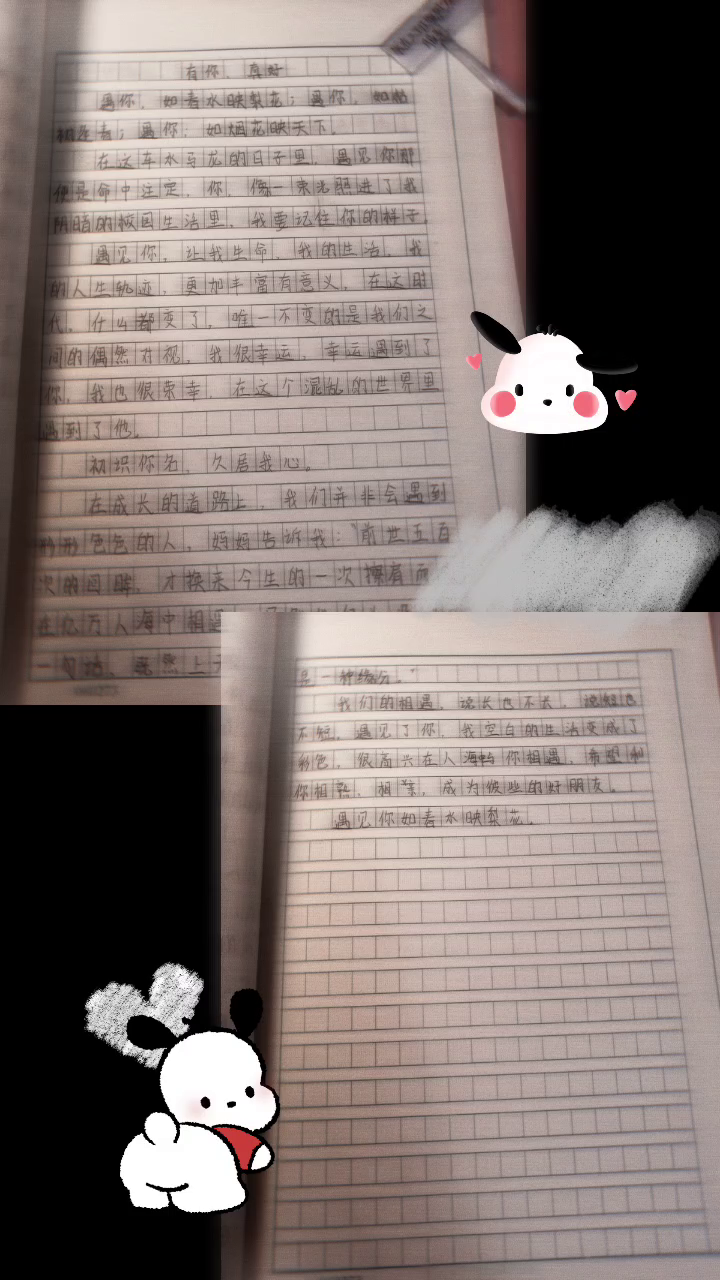 有你，真好
遇你，如春水映梨花；遇你，如
者；遇你；如烟花映天下。
在这车水马龙的日子里，遇见你那
便是命中注定，你，像一束光照进了我
阴暗的校园生活里，我要记住你的样子。
遇见你，让我生命，我的生活，我
的人生轨迹，更加丰富有意义，在这时
代，什么都变了，唯一不变的是我们之
间的偶然对视，我很幸运，幸运遇到了
你，我也很荣幸，在这个混乱的世界里
遇到了他。
初识你名，久居我心。
在成长的道路上，我们并非会遇到
形形色色的人，妈妈告诉我：“前世五百
次的回眸，才换来今生的一次擦肩而
在亿万人海中相遇
一句话，既然上天
是一种缘分。”
我们的相遇，说长也不长，说短也
不短，遇见了你，我空白的生活变成了
彩色，很高兴在人海中你相遇，希望和
你相熟，相亲，成为彼此的好朋友。
遇见你如春水映梨花。